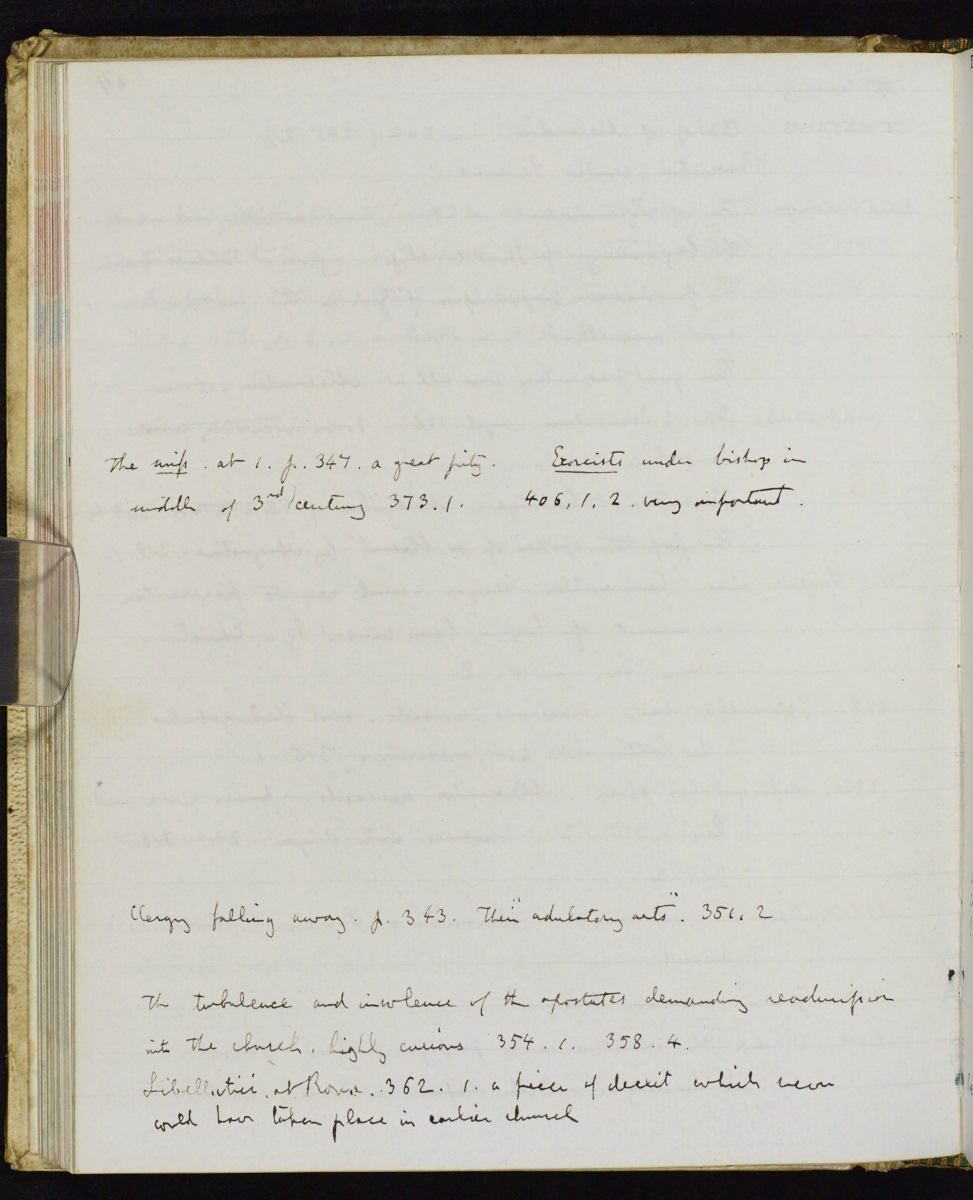 The miss. at 1. p. 347. a great pity. Exorcists under bishop in
middle of 3rd century 373.1. 406,1,2. very important.
Clergy falling away. p. 343. Their "adulatory arts". 351, 2
The turbulence and insolence of the apostates demanding readmission
into the church, highly curious 354.1. 358.4.
Libellatici at Rome. 362.1. a piece of deceit which never
could have taken place in earlier church